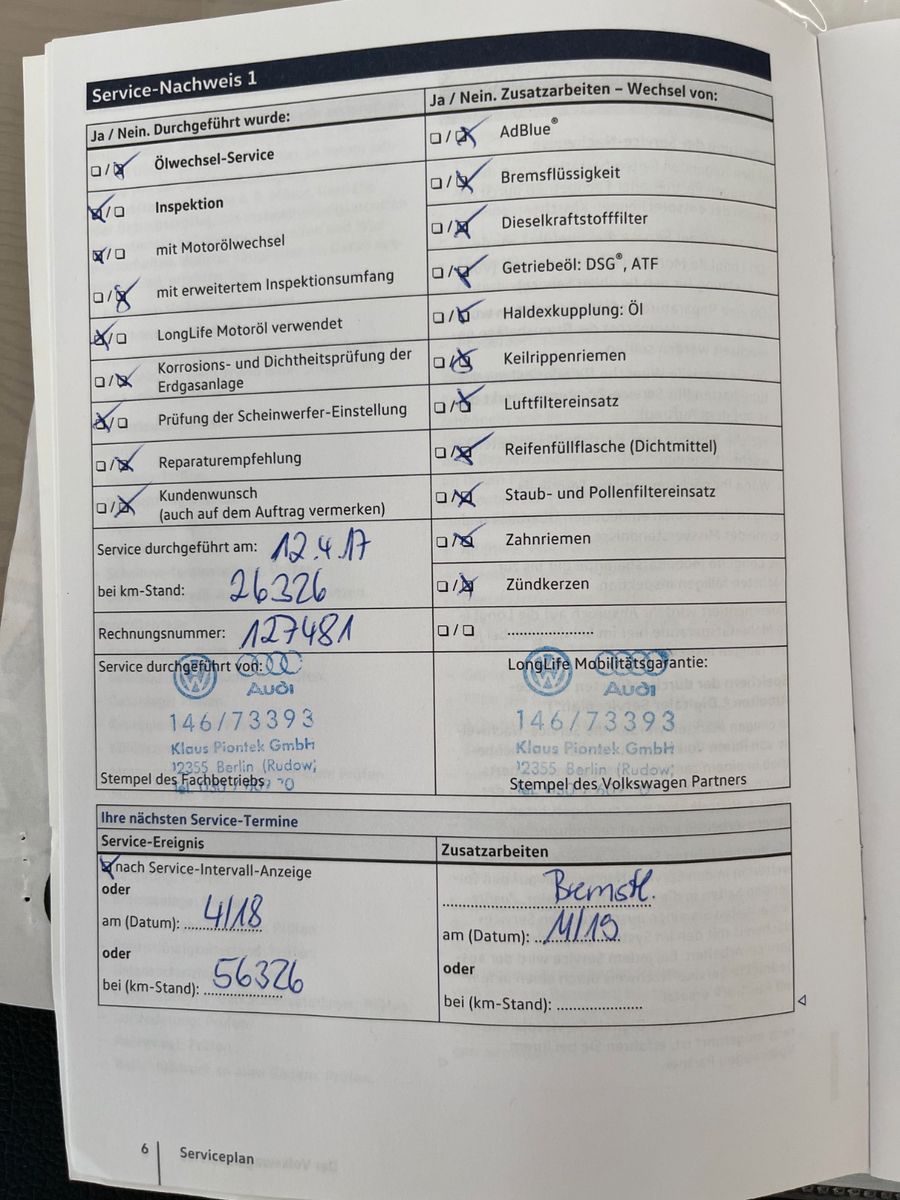 Service-Nachweis 1
Ja / Nein. Durchgeführt wurde:
☐/☒ Ölwechsel-Service
☒/☐ Inspektion
☒/☐ mit Motorölwechsel
☐/☒ mit erweitertem Inspektionsumfang
☒/☐ LongLife Motoröl verwendet
☐/☒ Korrosions- und Dichtheitsprüfung der
Erdgasanlage
☒/☐ Prüfung der Scheinwerfer-Einstellung
☐/☒ Reparaturempfehlung
☐/☒ Kundenwunsch
(auch auf dem Auftrag vermerken)
Service durchgeführt am: 12.4.17
bei km-Stand: 26326
Rechnungsnummer: 127481
Ja / Nein. Zusatzarbeiten – Wechsel von:
☐/☒ AdBlue®
☐/☒ Bremsflüssigkeit
☐/☒ Dieselkraftstofffilter
☐/☒ Getriebeöl: DSG®, ATF
☐/☒ Haldexkupplung: Öl
☐/☒ Keilrippenriemen
☐/☒ Luftfiltereinsatz
☐/☒ Reifenfüllflasche (Dichtmittel)
☐/☒ Staub- und Pollenfiltereinsatz
☐/☒ Zahnriemen
☐/☒ Zündkerzen
☐/☐ ......................
Service durchgeführt von:
Audi
146/73393
Klaus Piontek GmbH
12355 Berlin (Rudow)
Stempel des Fachbetriebs
LongLife Mobilitätsgarantie:
Audi
146/73393
Klaus Piontek GmbH
12355 Berlin (Rudow)
Stempel des Volkswagen Partners
Ihre nächsten Service-Termine
Service-Ereignis
☒ nach Service-Intervall-Anzeige
oder
am (Datum): 4/18
oder
bei (km-Stand): 56326
Zusatzarbeiten
Bremsfl.
am (Datum): 11/19
oder
bei (km-Stand): ......................
6 Serviceplan